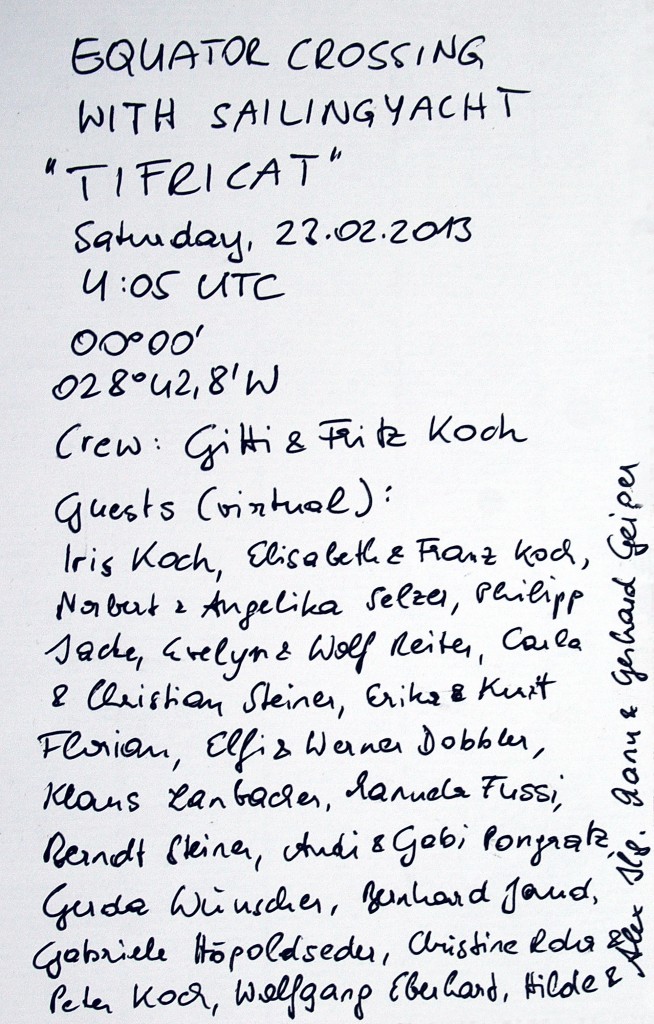 EQUATOR CROSSING
WITH SAILINGYACHT
"TIFRICAT"
Saturday, 23.02.2013
4:05 UTC
00°00'
028°42,8'W
Crew: Gitti & Fritz Koch
Guests (virtual):
Iris Koch, Elisabeth & Franz Koch,
Norbert & Angelika Selzer, Philipp
Evelyn & Wolf Reiter, Carla
& Christian Steiner, Erika & Kurt
Florian, Elfi & Werner Dobbler,
Klaus Manuela Fussi,
Berndt Steiner, Andi & Gabi Pongratz,
Gerda Wünscher, Bernhard Jaud,
Gabriele Höpoldseder, Christine Rohr &
Peter Koch, Wolfgang Eberhart, Hilde &
Alex & Gerhard Geiper